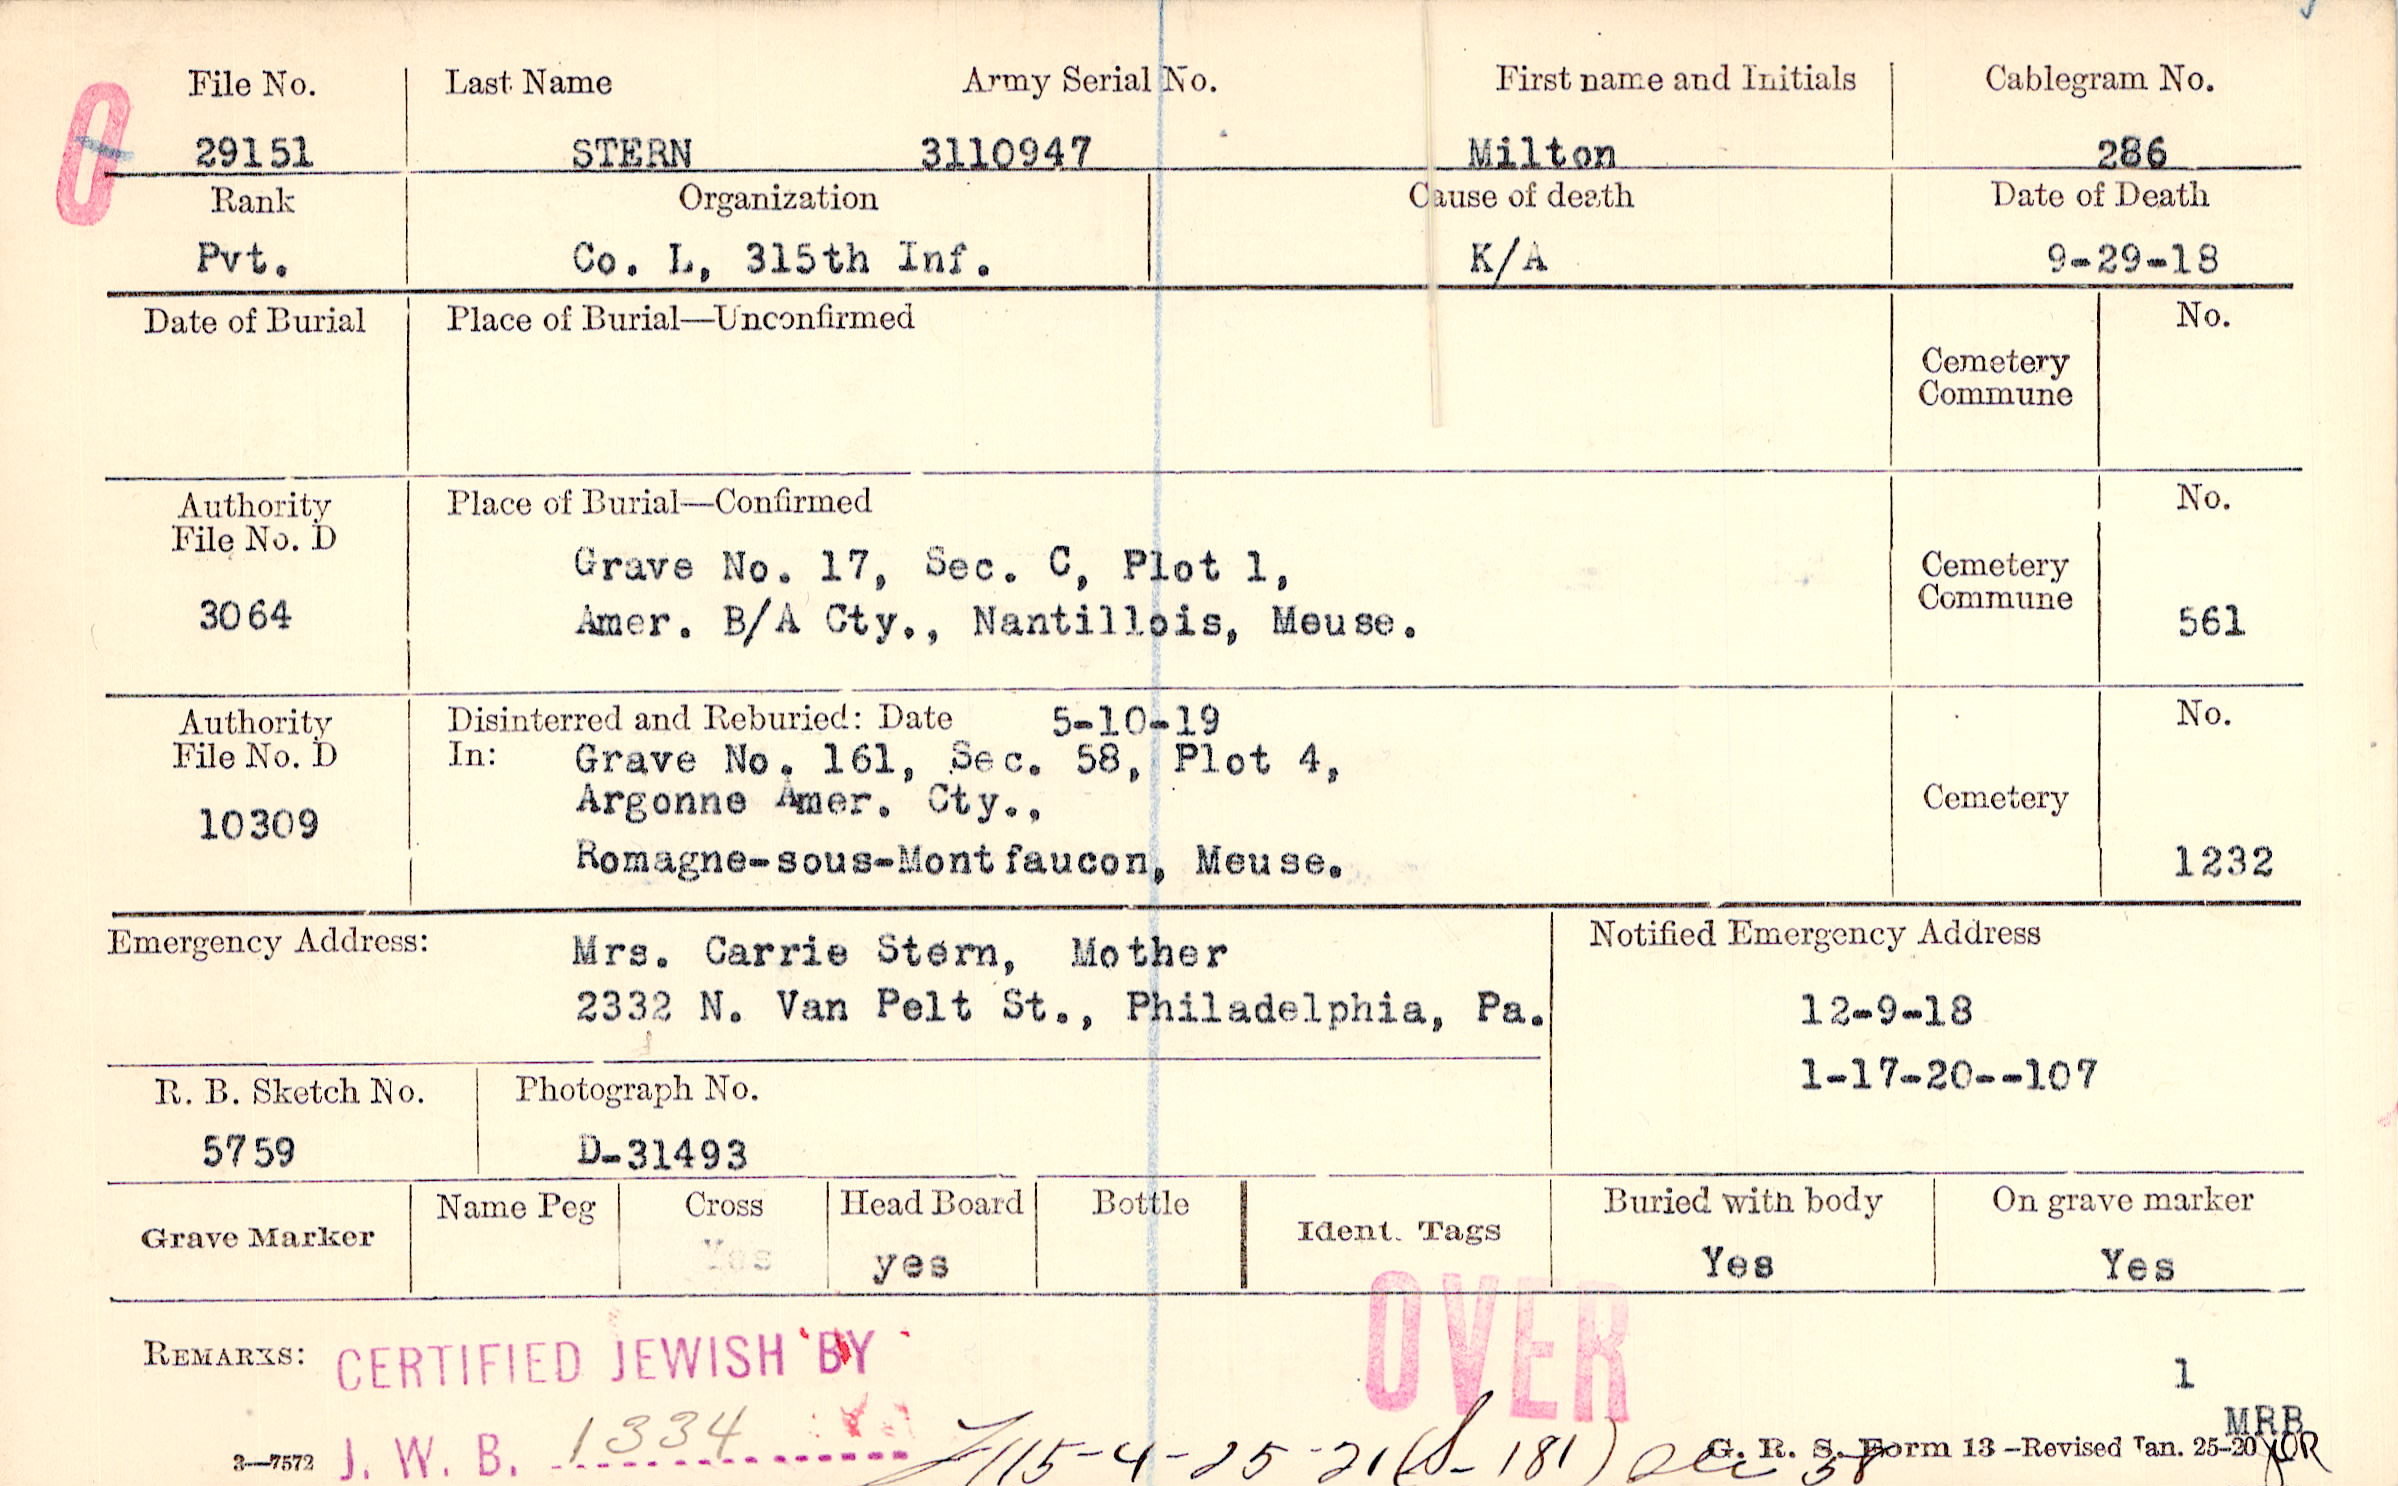 File No. Last Name Army Serial No. First name and Initials Cablegram No.
29151 STERN 3110947 Milton 286
Rank Organization Cause of death Date of Death
Pvt. Co. L, 315th Inf. K/A 9-29-18
Date of Burial Place of Burial—Unconfirmed No.
Cemetery
Commune
Authority Place of Burial—Confirmed No.
File No. D
Grave No. 17, Sec. C, Plot 1, Cemetery
Commune
3064 Amer. B/A Cty., Nantillois, Meuse. 561
Authority Disinterred and Reburied: Date 5-10-19 No.
File No. D In: Grave No. 161, Sec. 58, Plot 4,
Argonne Amer. Cty., Cemetery
10309
Romagne-sous-Montfaucon, Meuse. 1232
Emergency Address: Mrs. Carrie Stern, Mother Notified Emergency Address
2332 N. Van Pelt St., Philadelphia, Pa. 12-9-18
1-17-20--107
R. B. Sketch No. Photograph No.
5759 D-31493
Grave Marker Name Peg Cross Head Board Bottle Ident. Tags Buried with body On grave marker
Yes yes Yes Yes
OVER
REMARKS: CERTIFIED JEWISH BY 1
J. W. B. 1334 MRB
3—7572 115-4-25-21 (S-181) 58 G. R. S. Form 13—Revised Jan. 25-20